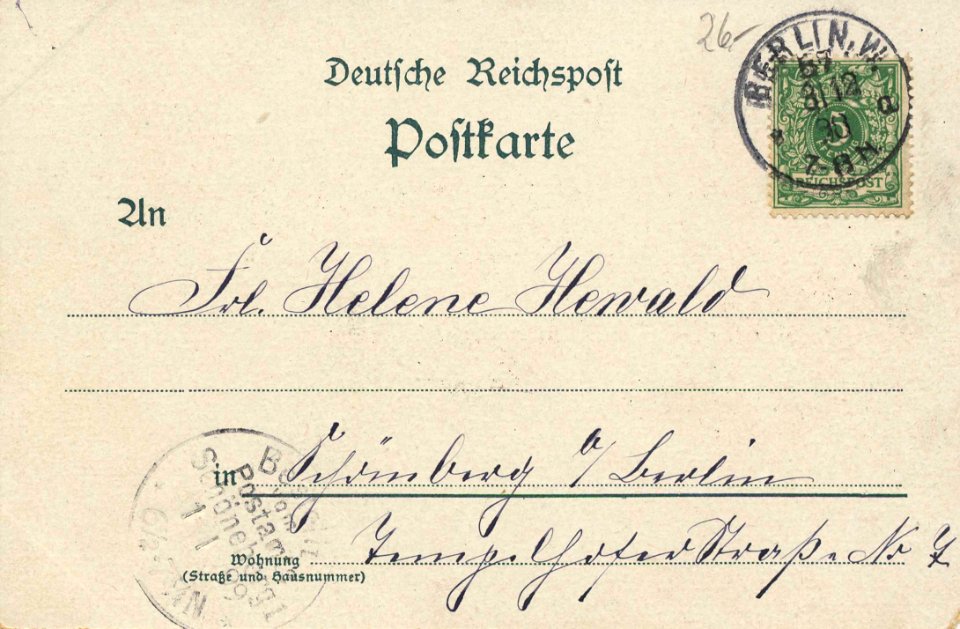 26.-
BERLIN, W.
57
31 12
7-8 N.
a
5
REICHSPOST
Deutsche Reichspost
Postkarte
An
Frl. Helene Hewald
in Schönberg a/Berlin
Wohnung
(Straße und Hausnummer)
Tempelhofer Straße No 7
Postamt
1 1
99